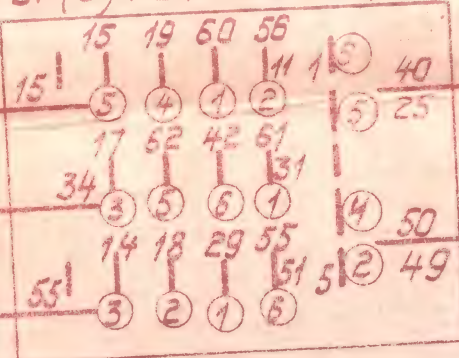 15 19 60 56
15 11 1 8 40
5 4 1 2 5 25
17 62 42 61
34 31
3 5 6 1 4 50
14 18 29 55
55 51 5 2 49
3 2 1 6